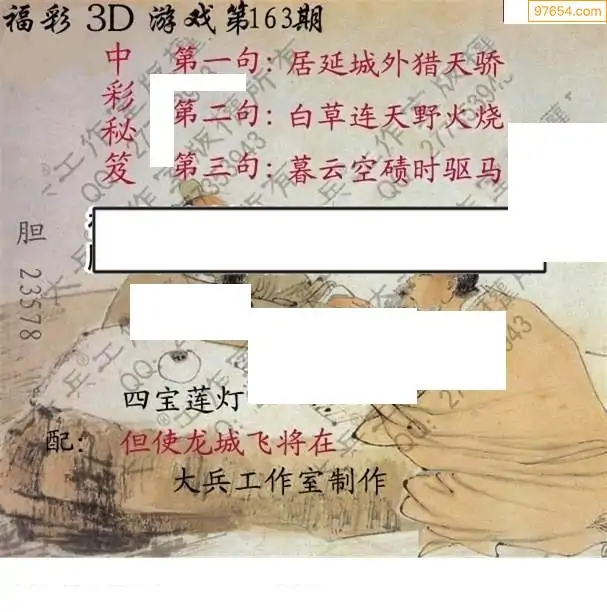 福彩 3D 游戏第163期
97654.com
中彩秘笈
第一句：居延城外猎天骄
第二句：白草连天野火烧
第三句：暮云空碛时驱马
胆
23578
四宝莲灯
配：但使龙城飞将在
大兵工作室制作